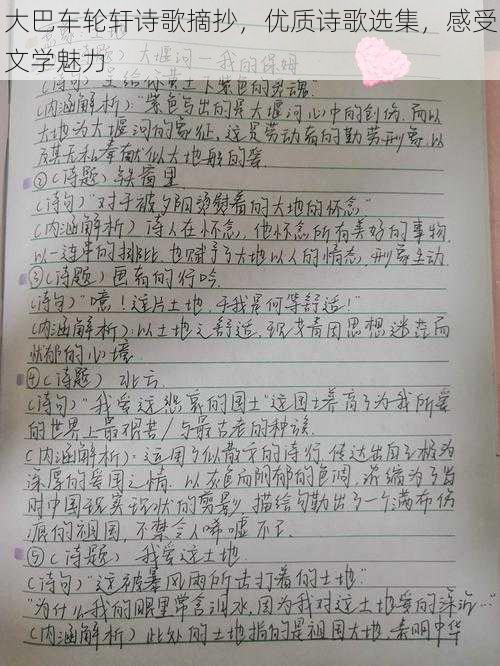 大巴车轮轩诗歌摘抄，优质诗歌选集，感受
文学魅力
大堰河——我的保姆
(诗句)"呈给你黄土下紫色的灵魂"
(内涵解析):"紫色写出的是大堰河心中的创伤,而以
大地为大堰河的象征,这是劳动者的勤劳形象,以
及其无私奉献似大地般的
②(诗题)铁窗里
(诗句)"对于被夕阳烫熨着的大地的怀念"
(内涵解析)诗人在怀念,他怀念所有美好的事物,
以一连串的排比,也赋予了大地以人的情态,形象生动
③(诗题)画者的行吟
(诗句)"噫!这片土地,于我是何等舒适!"
(内涵解析):以土地之舒适,现艾青因思想迷茫而
忧郁的心境
④(诗题)北方
(诗句)"我爱这悲哀的国土"这国土养育了为我所爱
的世界上最艰苦/与最古老的种族
(内涵解析):运用了似散文的诗行,传达出自己极为
深厚的爱国之情.以灰色而阴郁的色调,浓缩为了当
时中国现实现状的剪影,描绘勾勒出了一个满布伤
痕的祖国,不禁令人唏嘘不已
⑤(诗题)我爱这土地
(诗句)"这被暴风雨所击打着的土地"
"为什么我的眼里常含泪水,因为我对这土地爱的深沉…"
(内涵解析)此处的土地指的是祖国大地,表明中华